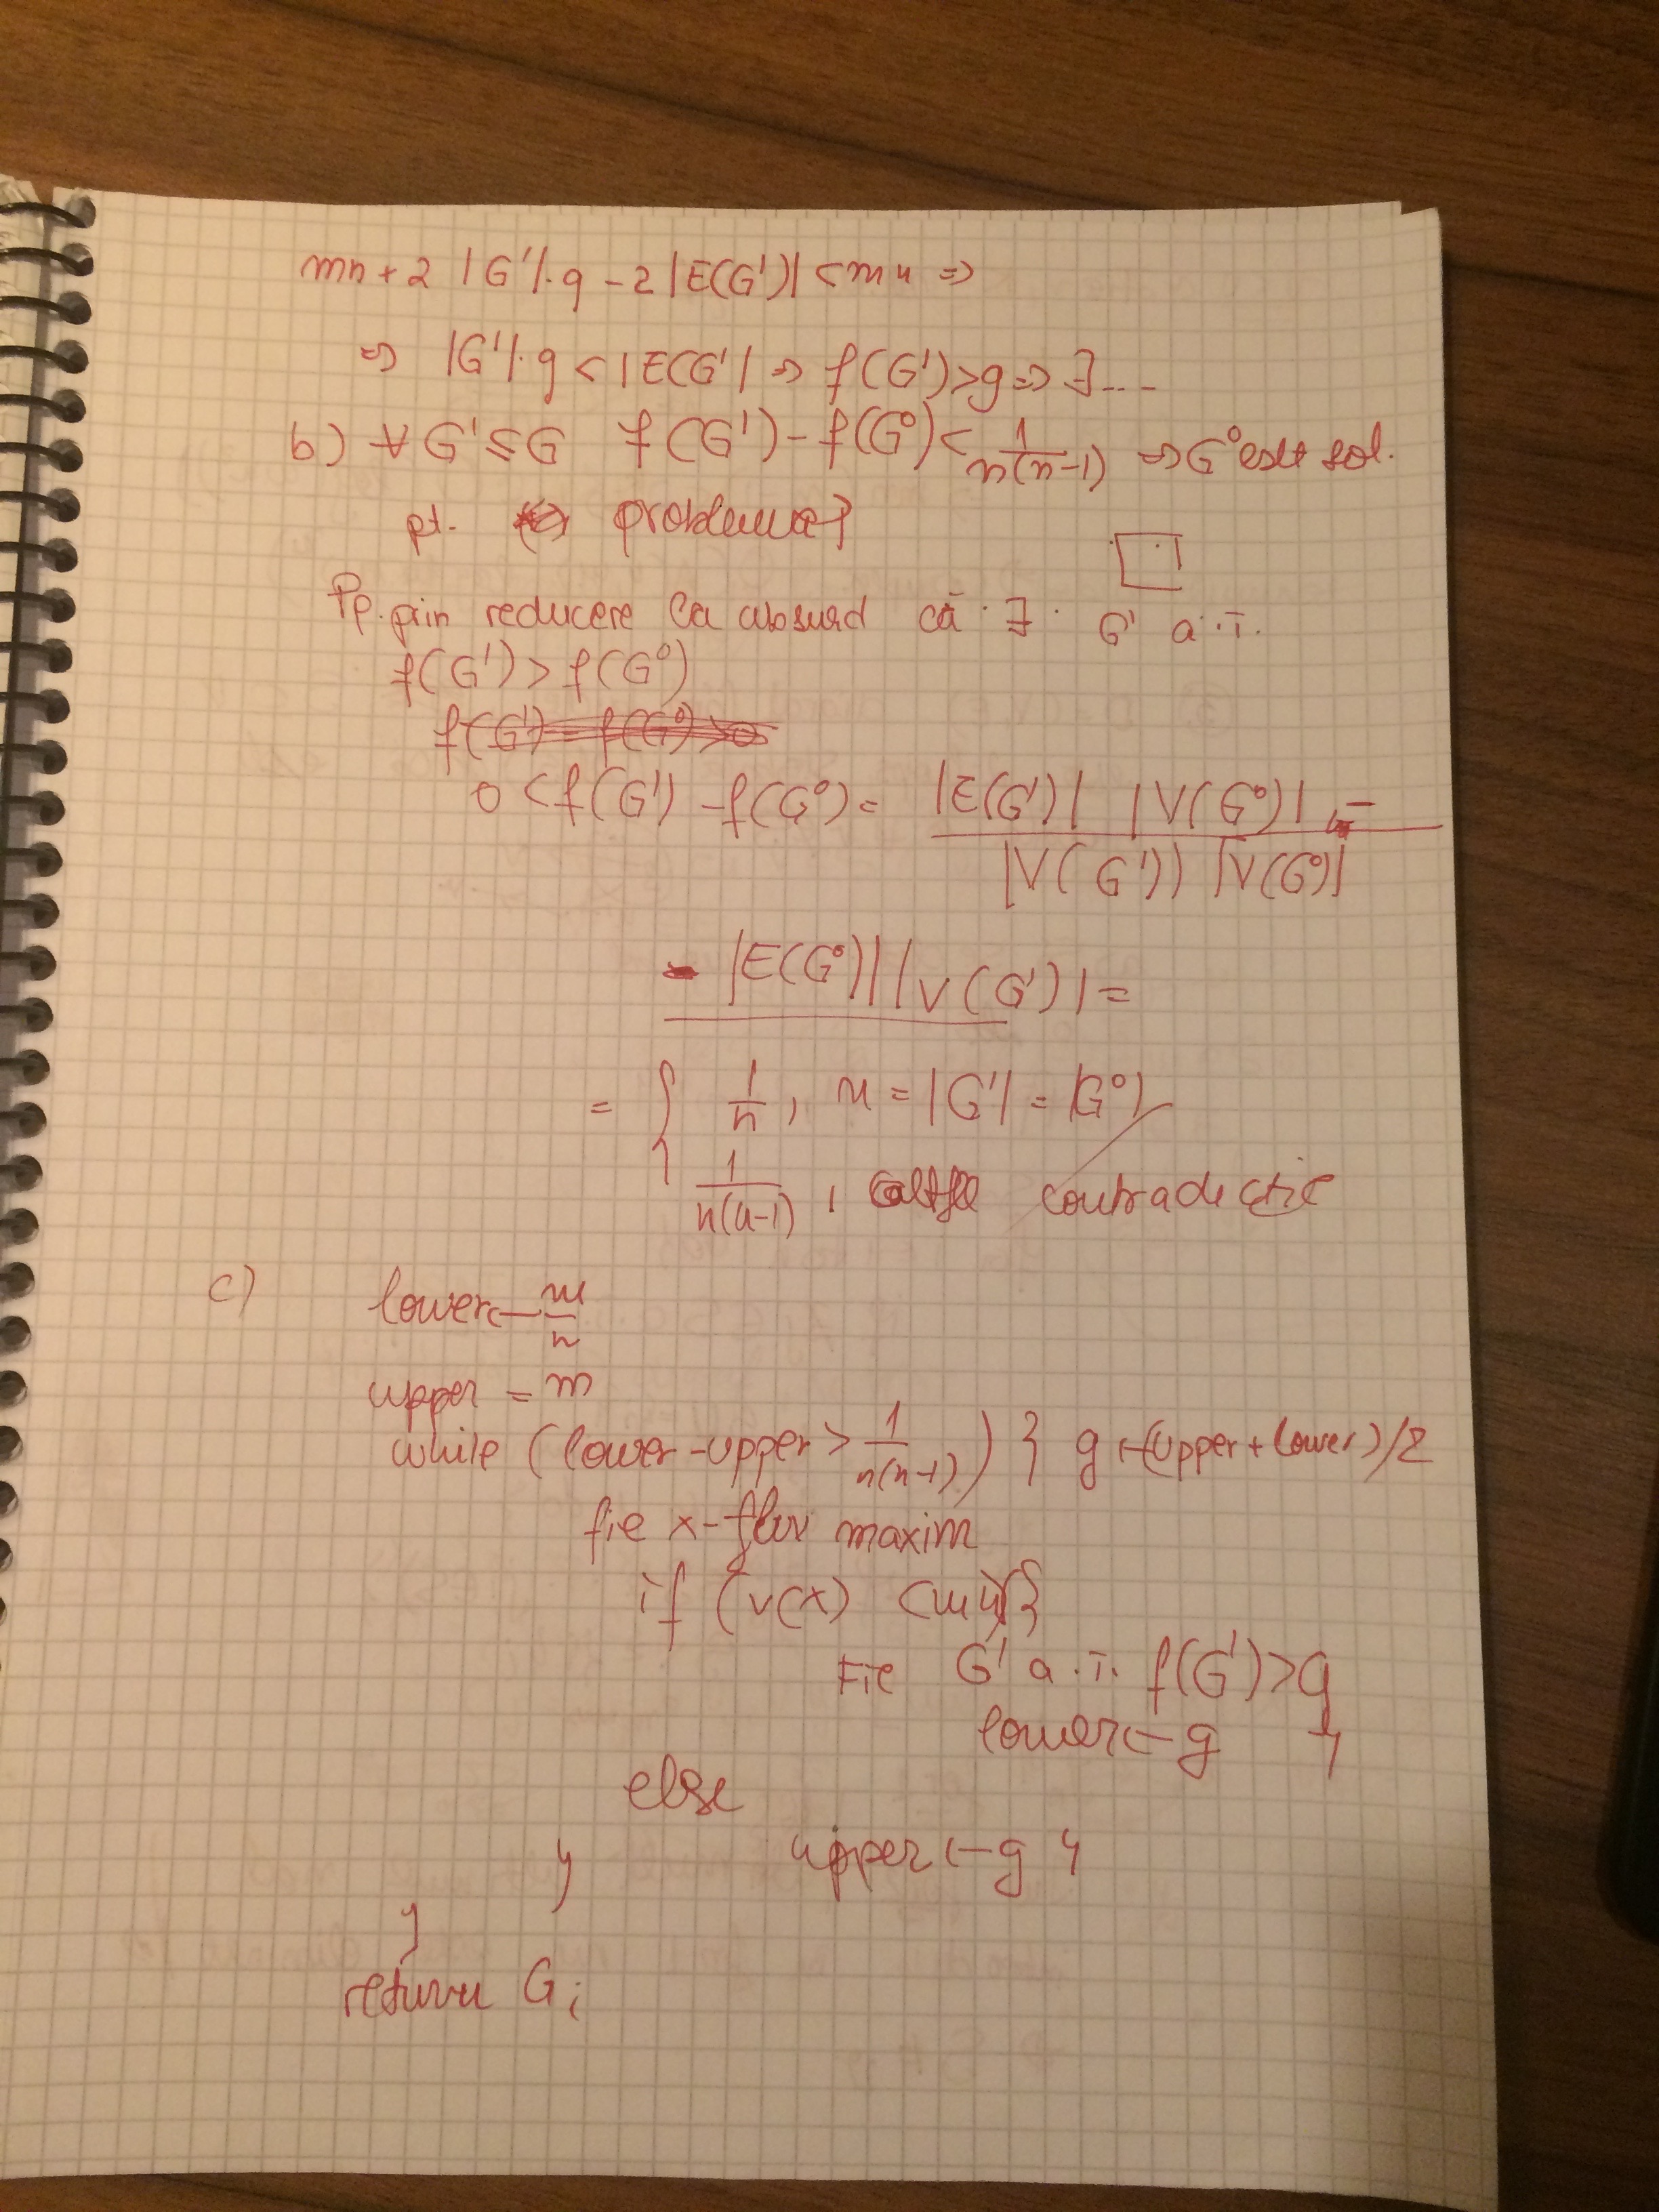 mn + 2 |G'|·g - 2|E(G')| < mn =>
=> |G'|·g < |E(G'| => f(G')>g => ∃...
b) ∀ G'≤G f(G') - f(G⁰) < 1/n(n-1) => G⁰ este sol.
pt. problema
Pp. prin reducere la absurd că ∃ G' a.î.
f(G') > f(G⁰)
f(G') - f(G⁰) > 0
0 < f(G') - f(G⁰) = |E(G')| |V(G⁰)| - / |V(G')| |V(G⁰)|
- |E(G⁰)| |V(G')| =
= { 1/n, n = |G'| = |G⁰|
1/n(n-1), altfel contradicție
c) lower ← m/n
upper = m
while (lower - upper > 1/n(n-1)) { g ← (upper + lower)/2
fie x - flux maxim
if (v(x) < mn) {
Fie G' a.î. f(G') > g
lower ← g }
else
} upper ← g }
}
return G;